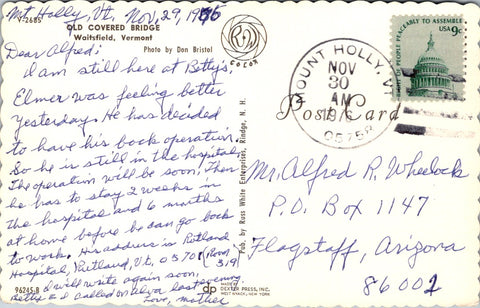 Mt. Holly, Vt. Nov. 29, 1975
V-2685
OLD COVERED BRIDGE
Waitsfield, Vermont
Photo by Don Bristol
COLOR
Dear Alfred:
I am still here at Betty's.
Elmer was feeling better
yesterday. He has decided
to have his back operation.
So he is still in the hospital.
The operation will be soon, then
he has to stay 2 weeks in
the hospital and 6 months
at home before he can go back
to work. His address is Rutland
Hospital, Rutland, Vt. 05701 (Room 319)
I will write again soon.
Betty & I called on Alva last evening.
Love, mother
96245-B
Pub. by Ross White Enterprises, Rindge, N. H.
dp
DEXTER PRESS, INC.
WEST NYACK, NEW YORK
MOUNT HOLLY, VT
NOV
30
AM
05758
RIGHT OF PEOPLE PEACEABLY TO ASSEMBLE
USA 9c
Post Card
Mr. Alfred R. Wheelock
P.O. Box 1147
Flagstaff, Arizona
86002